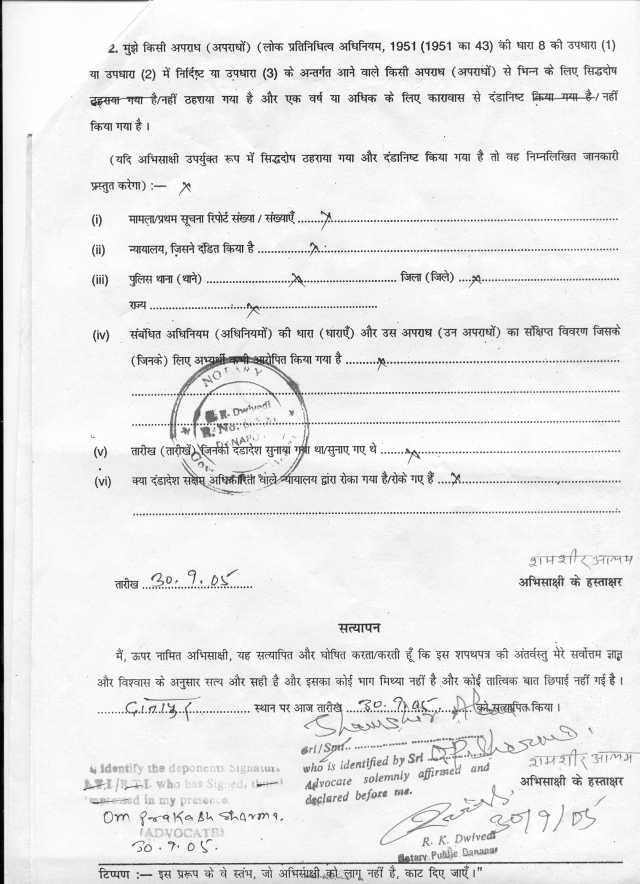 2. मुझे किसी अपराध (अपराधों) (लोक प्रतिनिधित्व अधिनियम, 1951 (1951 का 43) की धारा 8 की उपधारा (1)
या उपधारा (2) में निर्दिष्ट या उपधारा (3) के अन्तर्गत आने वाले किसी अपराध (अपराधों) से भिन्न के लिए सिद्धदोष
ठहराया गया है/नहीं ठहराया गया है और एक वर्ष या अधिक के लिए कारावास से दंडानिष्ट किया गया है / नहीं
किया गया है ।
(यदि अभिसाक्षी उपर्युक्त रूप में सिद्धदोष ठहराया गया और दंडानिष्ट किया गया है तो वह निम्नलिखित जानकारी
प्रस्तुत करेगा) :— x
(i) मामला/प्रथम सूचना रिपोर्ट संख्या / संख्याएँ ..... x .....
(ii) न्यायालय, जिसने दंडित किया है ..... x .....
(iii) पुलिस थाना (थाने) ..... x ..... जिला (जिले) ..... x .....
राज्य ..... x .....
(iv) संबंधित अधिनियम (अधिनियमों) की धारा (धाराएँ) और उस अपराध (उन अपराधों) का संक्षिप्त विवरण जिसके
(जिनके) लिए अभ्यर्थी कभी आरोपित किया गया है ..... x .....
NOTARY
R. Dwivedi
(v) तारीख (तारीखें) जिनको दंडादेश सुनाया गया था/सुनाए गए थे ..... x .....
(vi) क्या दंडादेश सक्षम अधिकारिता वाले न्यायालय द्वारा रोका गया है/रोके गए हैं ..... x .....
शमशीर आलम
तारीख 30.9.05
अभिसाक्षी के हस्ताक्षर
सत्यापन
मैं, ऊपर नामित अभिसाक्षी, यह सत्यापित और घोषित करता/करती हूँ कि इस शपथपत्र की अंतर्वस्तु मेरे सर्वोत्तम ज्ञान
और विश्वास के अनुसार सत्य और सही है और इसका कोई भाग मिथ्या नहीं है और कोई तात्विक बात छिपाई नहीं गई है ।
स्थान पर आज तारीख 30.9.05 को सत्यापित किया ।
Shamshir Alam
Sri/Smt.
who is identified by Sri
Advocate solemnly affirmed and
declared before me.
शमशीर आलम
अभिसाक्षी के हस्ताक्षर
I identify the deponents Signature
who has Signed,
in my presence
Om Prakash Sharma.
(ADVOCATE)
30.9.05.
30/9/05
R. K. Dwivedi
Notary Public Danapur
टिप्पण :— इस प्ररूप के वे स्तंभ, जो अभिसाक्षी को लागू नहीं है, काट दिए जाएँ ।"